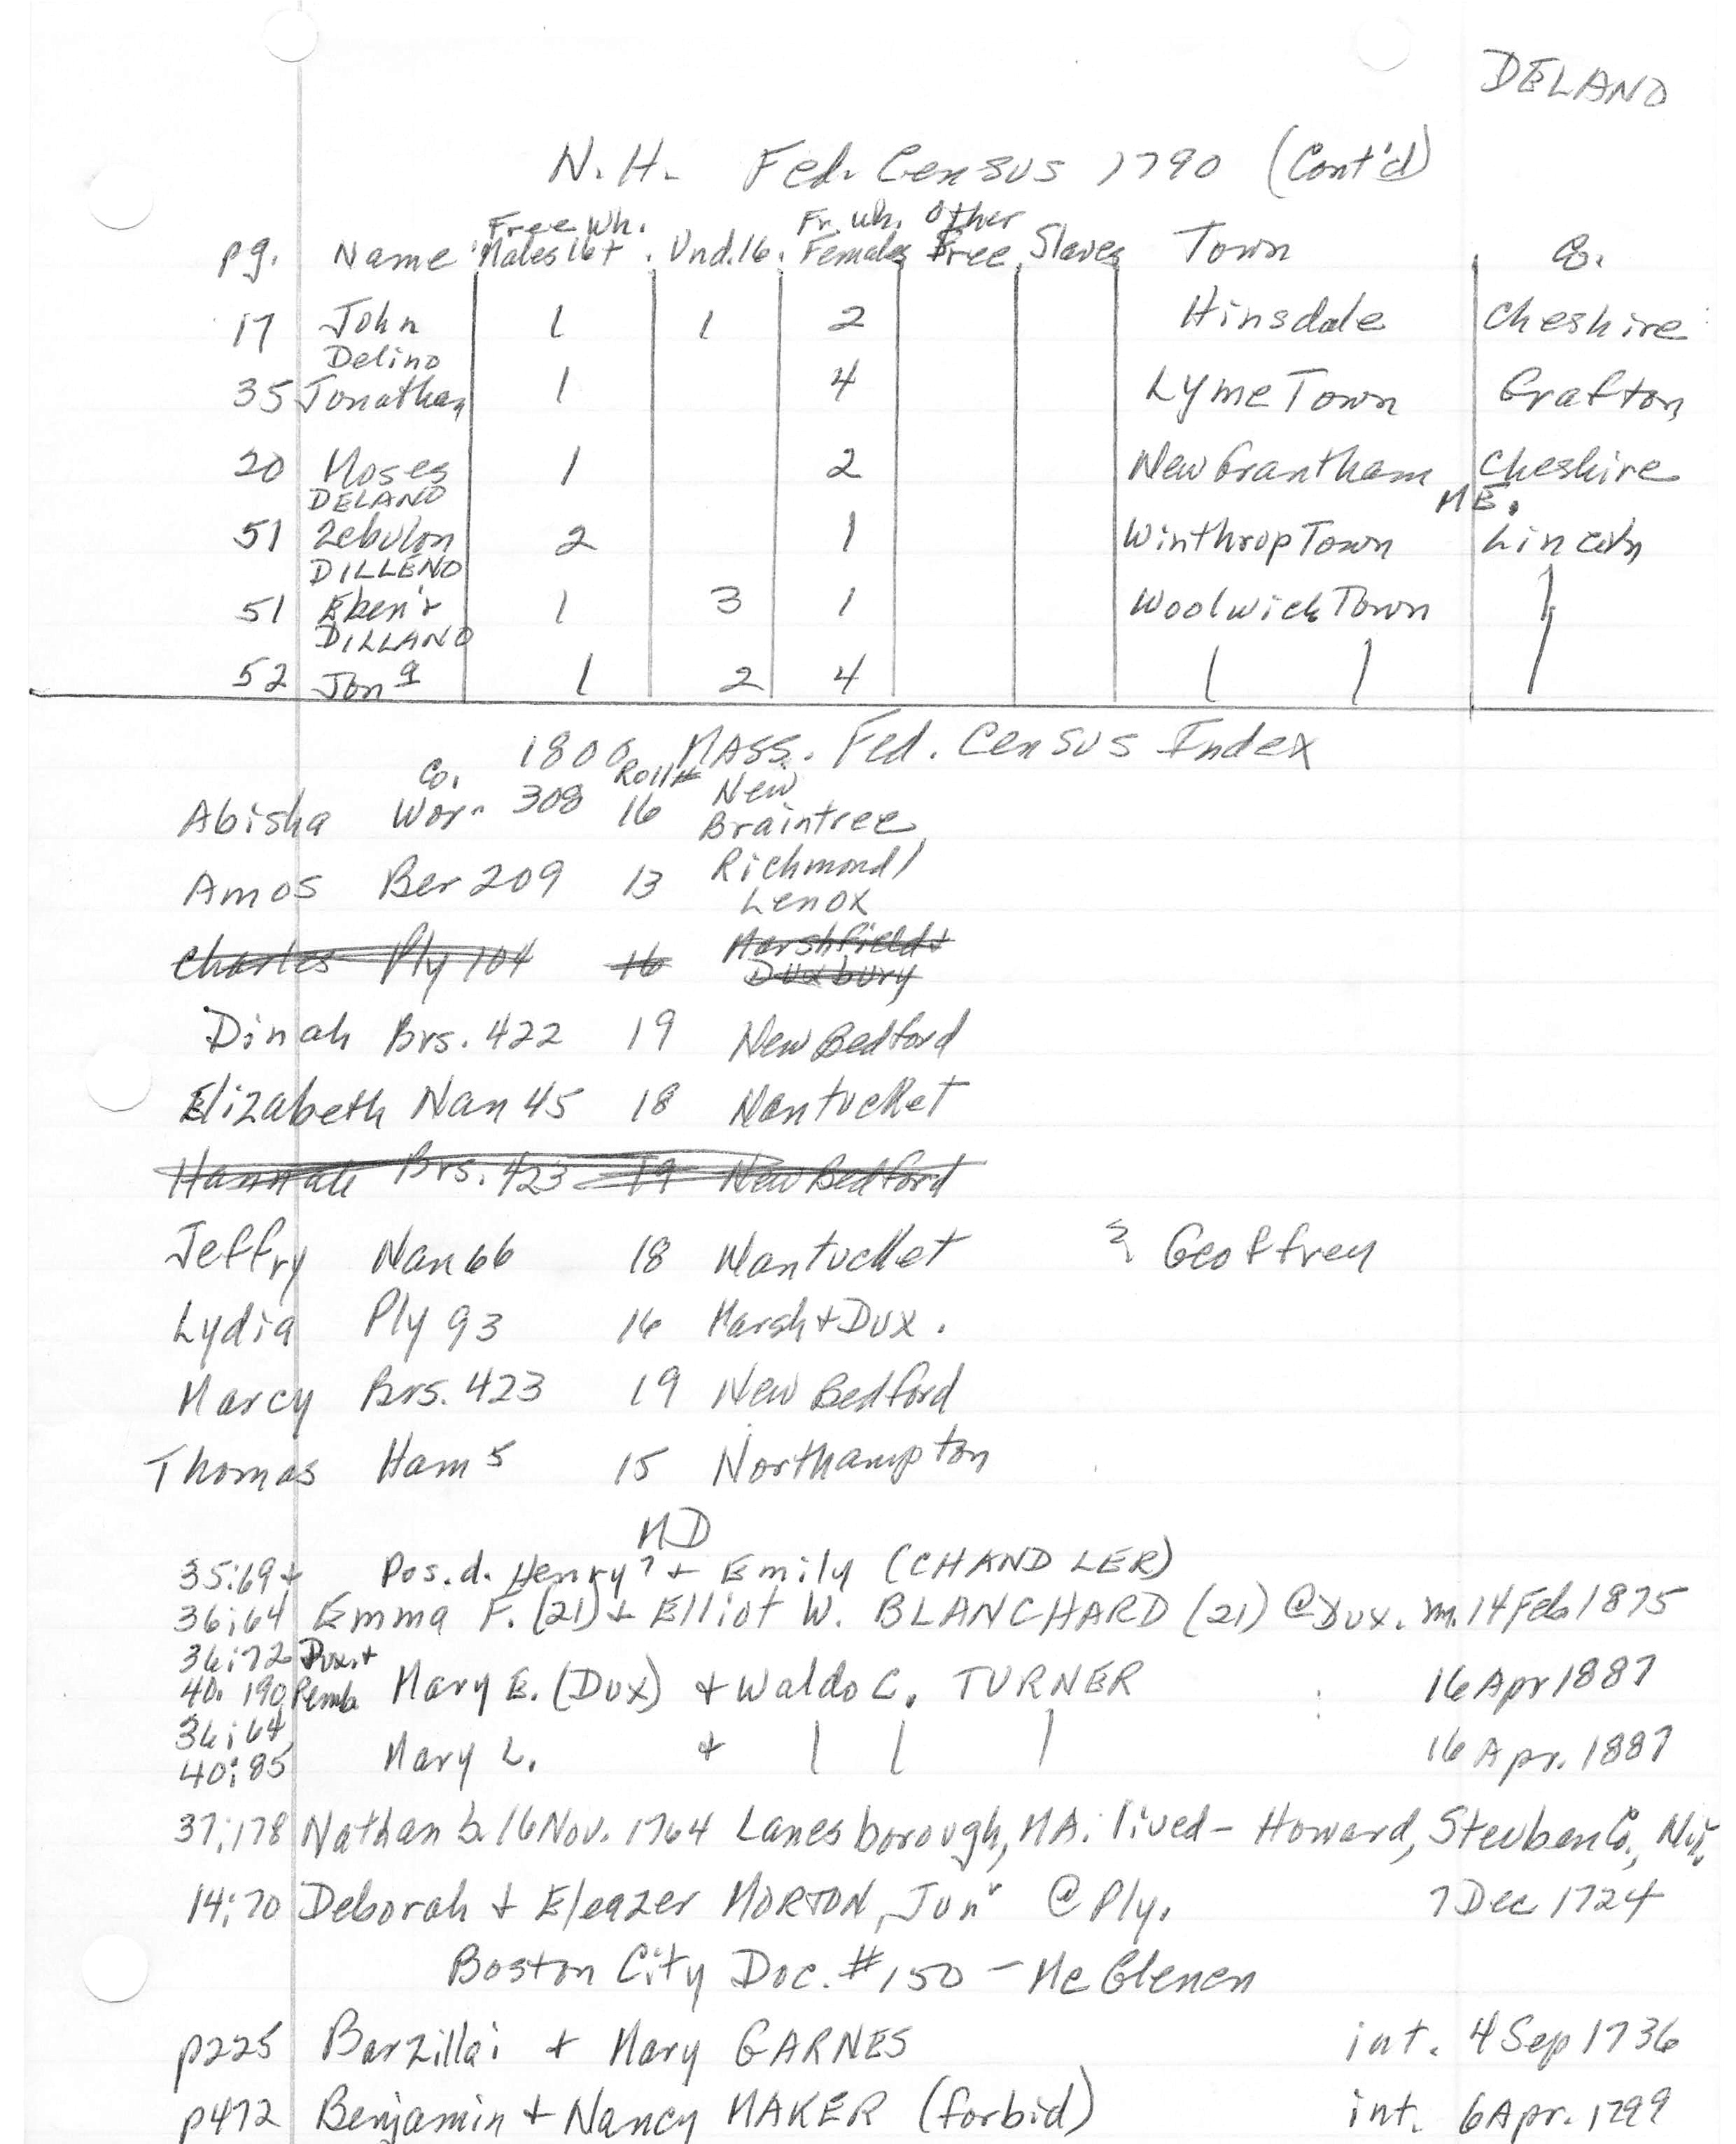 DELAND
N.H. Fed. Census 1790 (Cont'd)
Free Wh. Fr. Wh. Other
pg. Name Males 16+ Und. 16. Females Free Slaves Town Co.
17 John 1 1 2 Hinsdale Cheshire
Delino
35 Jonathan 1 4 Lyme Town Grafton
20 Moses 1 2 New Grantham Cheshire
DELANO ME.
51 Zebulon 2 1 Winthrop Town Lincoln
DILLENO
51 Eben'r 1 3 1 Woolwich Town |
DILLANO
52 Jon a 1 2 4 | | |
1800 Mass. Fed. Census Index
Co. Roll# New
Abisha Wor. 308 16 Braintree
Amos Ber 209 13 Richmond/
Lenox
Charles Ply 104 16 Marshfield +
Duxbury
Dinah Brs. 422 19 New Bedford
Elizabeth Nan 45 18 Nantucket
Hannah Brs. 423 19 New Bedford
Jeffry Nan 66 18 Nantucket Geoffrey
Lydia Ply 93 16 Marsh + Dux.
Marcy Brs. 423 19 New Bedford
Thomas Ham 5 15 Northampton
MD
35:69 + Pos. d. Henry? + Emily (CHANDLER)
36:64 Emma F. (21) + Elliot W. BLANCHARD (21) @ Dux. m. 14 Feb 1875
36:72 Dux. +
40:190 Pemb. Mary E. (Dux) + Waldo C. TURNER 16 Apr 1887
36:64,
40:85 Mary L. + | | | 16 Apr. 1887
37:178 Nathan b. 16 Nov. 1764 Lanesborough, MA. lived - Howard, Steuben Co., N.Y.
14:70 Deborah + Eleazer MORTON, Junr @ Ply. 7 Dec 1724
Boston City Doc. #150 - McGlenen
p225 Barzillai + Mary GARNES int. 4 Sep 1736
p472 Benjamin + Nancy MAKER (forbid) int. 6 Apr. 1799